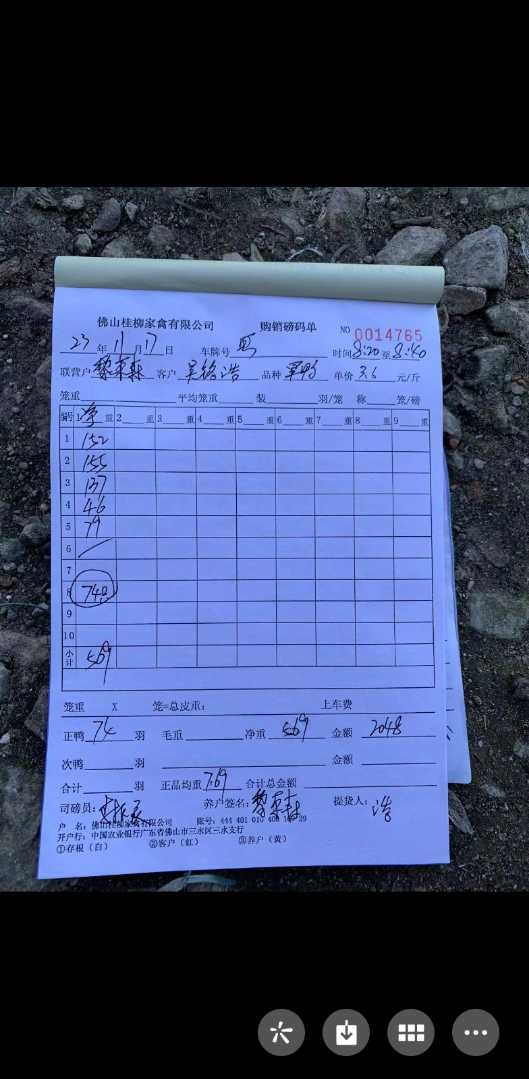 佛山桂柳家禽有限公司 购销磅码单 NO 0014765
23 年 11 月 17 日 车牌号 时间 8:20 至 8:40
联营户 黎 客户 吴铭浩 品种 单价 3.6 元/斤
笼重 平均笼重 装 羽/笼 称 笼/磅
编号 1 净 重 2 重 3 重 4 重 5 重 6 重 7 重 8 重 9 重
1 152
2 155
3 137
4 46
5 79
6
7
8 74只
9
10
小计 569
笼重 X 笼=总皮重: 上车费
正鸭 74 羽 毛重 净重 569 金额 2048
次鸭 羽 金额
合计 羽 正品均重 7.69 合计总金额
司磅员: 养户签名: 黎 提货人: 浩
户 名: 佛山桂柳家禽有限公司 账号: 444 401 010 400
开户行: 中国农业银行广东省佛山市三水区三水支行
①存根(白) ②客户(红) ③养户(黄)